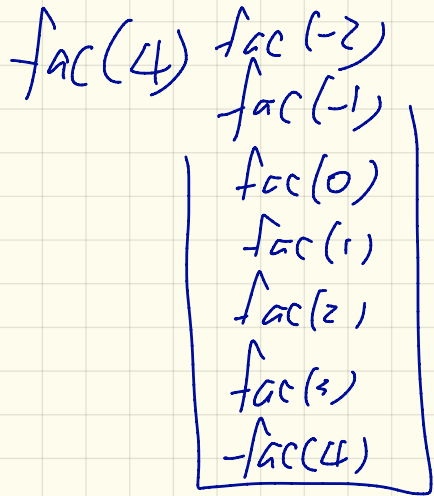 fac(4)
fac(-2)
fac(-1)
fac(0)
fac(1)
fac(2)
fac(3)
fac(4)